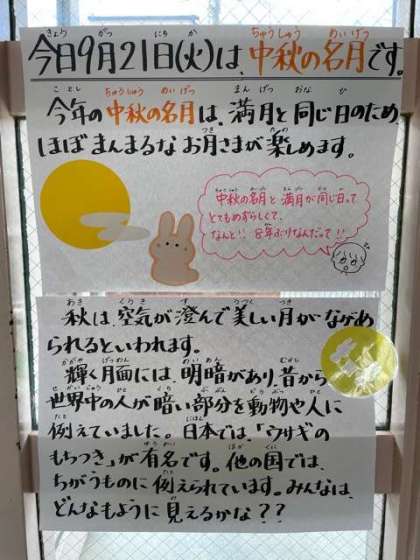 今日9月21日(火)は、中秋の名月です。
今年の中秋の名月は、満月と同じ日のため、
ほぼまんまるなお月さまが楽しめます。
中秋の名月と満月が同じ日って
とてもめずらしくて、
なんと!! 8年ぶりなんだって!!
秋は、空気が澄んで美しい月がながめ
られるといわれます。
輝く月面には、明暗があり、昔から
世界中の人が暗い部分を動物や人に
例えていました。日本では、「ウサギの
もちつき」が有名です。他の国では、
ちがうものに例えられています。みんなは、
どんなもように見えるかな??